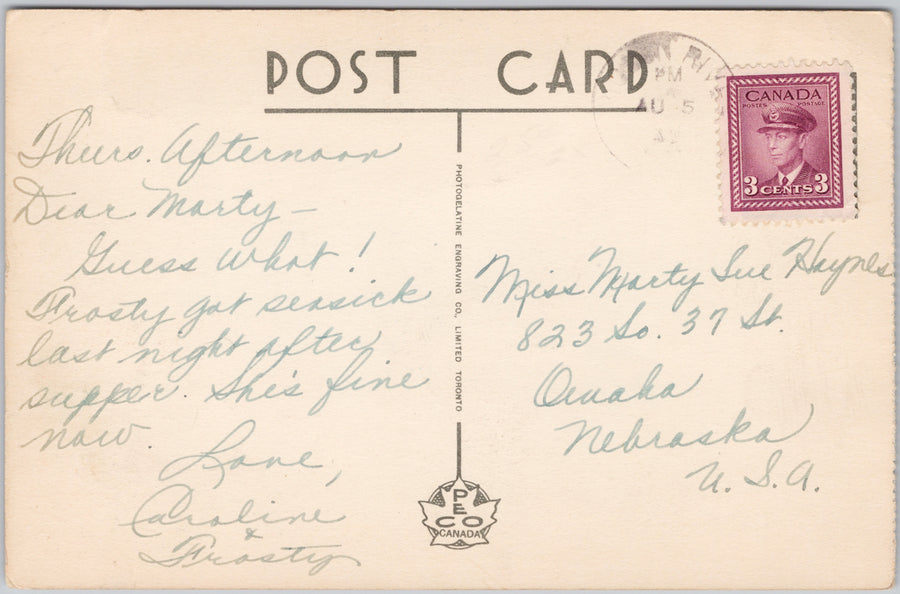 POST CARD
PM
AU 5
CANADA
POSTES POSTAGE
3 CENTS 3
Thurs. Afternoon
Dear Marty—
Guess what!
Frosty got seasick
last night after
supper. She's fine
now.
Love,
Caroline
&
Frosty
PHOTOGELATINE ENGRAVING CO., LIMITED TORONTO
Miss Marty Sue Haynes
823 So. 37 St.
Omaha
Nebraska
U. S. A.
PECO
CANADA